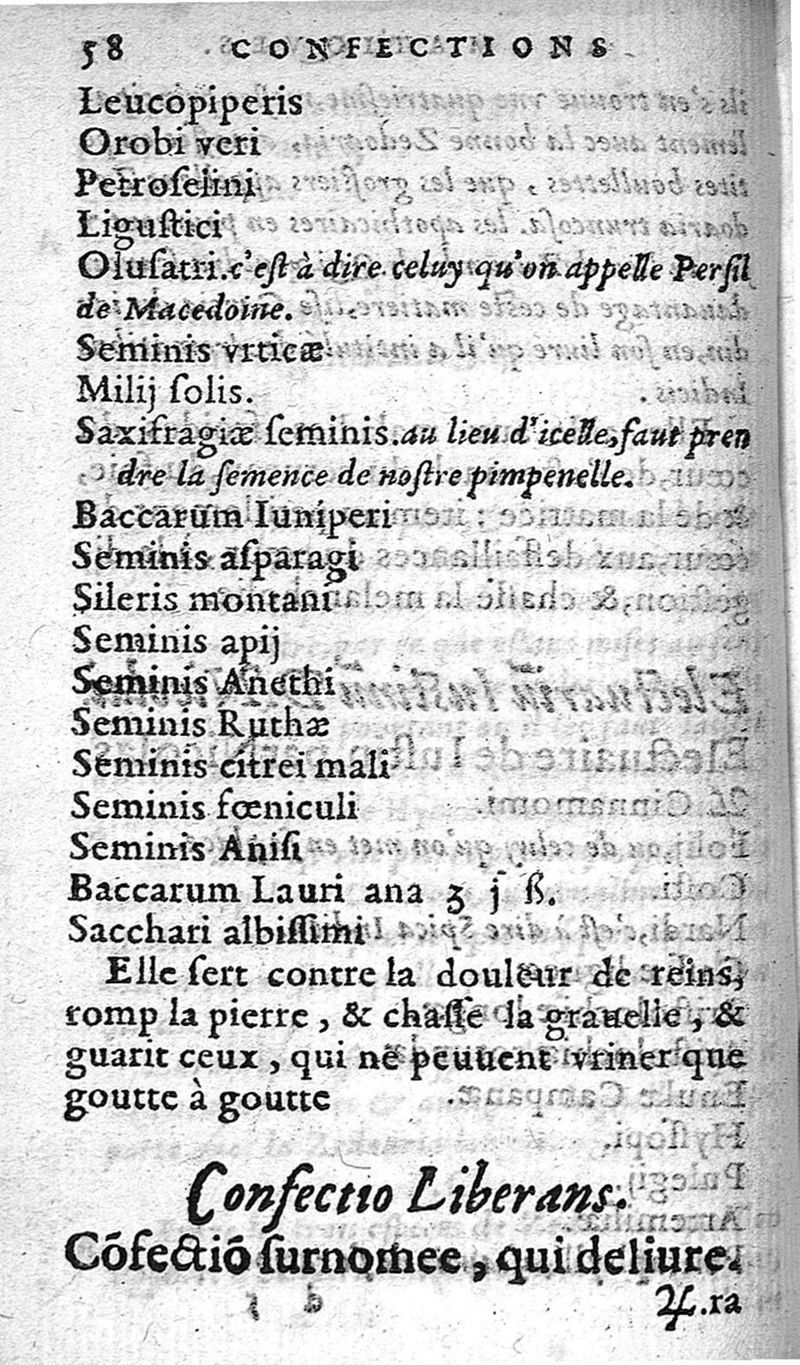 58 CONFECTIONS
Leucopiperis
Orobi veri
Petroſelini
Liguſtici
Oluſatri.c'eſt à dire celuy qu'on appelle Perſil
de Macedoine.
Seminis vrticæ
Milij ſolis.
Saxifragiæ ſeminis.au lieu d'icelle,faut pren
dre la ſemence de noſtre pimpenelle.
Baccarum Iuniperi
Seminis aſparagi
Sileris montani
Seminis apij
Seminis Anethi
Seminis Ruthæ
Seminis citrei mali
Seminis fœniculi
Seminis Aniſi
Baccarum Lauri ana ʒ j ß.
Sacchari albiſſimi
Elle ſert contre la douleur de reins,
romp la pierre , & chaſſe la grauelle , &
guarit ceux , qui ne peuuent vriner que
goutte à goutte
Confectio Liberans.
Cōfectiō ſurnomee , qui deliure.
♃.ra